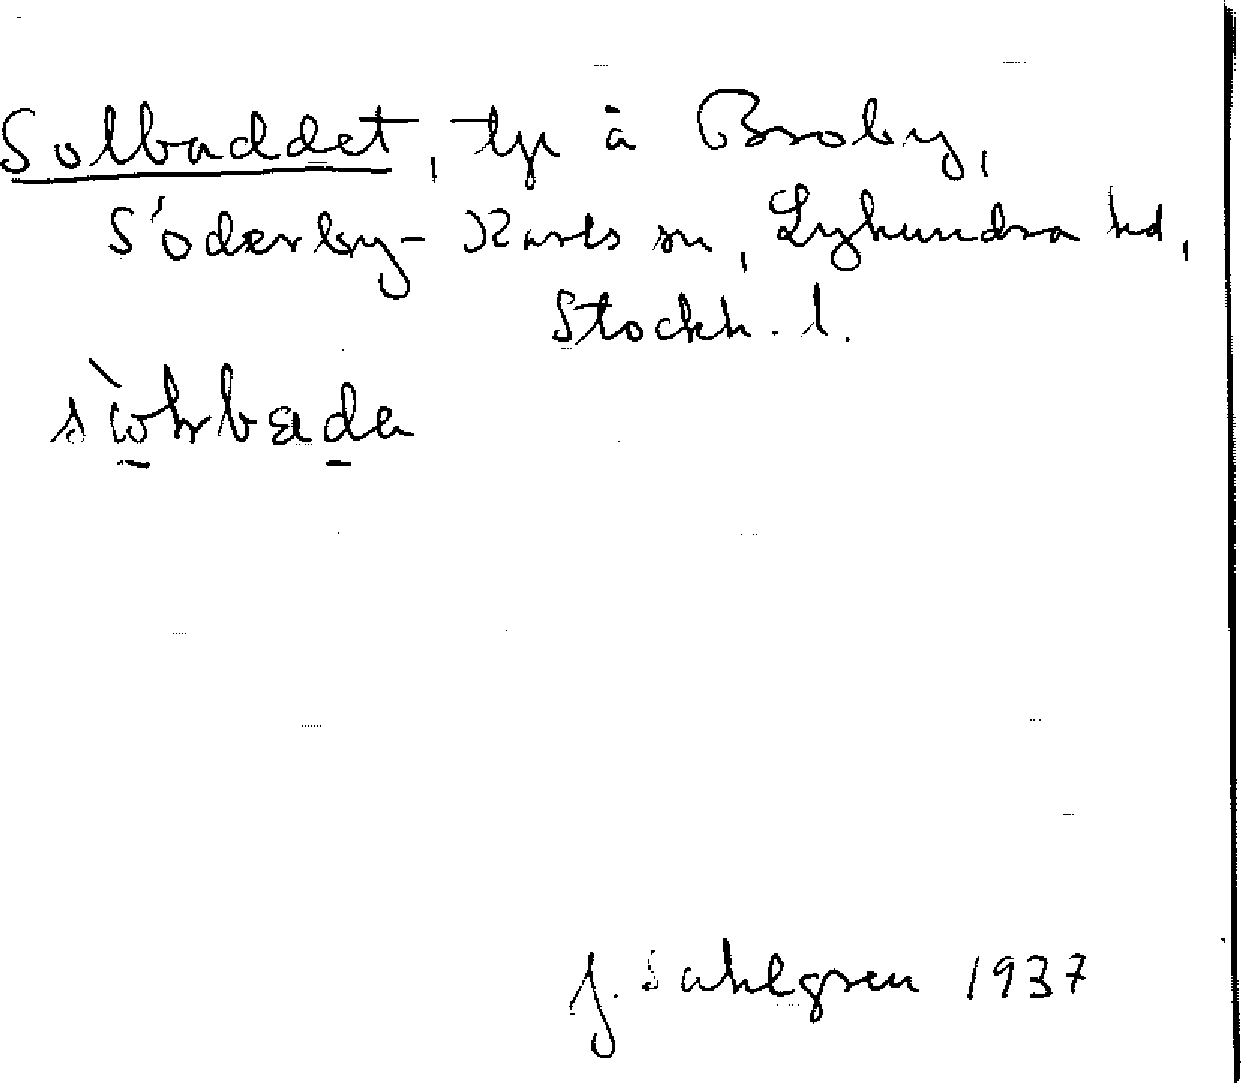 Solbaddet, lge å Broby,
Söderby-Karls sn, Lyhundra hd,
Stockh. l.
J. Sahlgren 1937